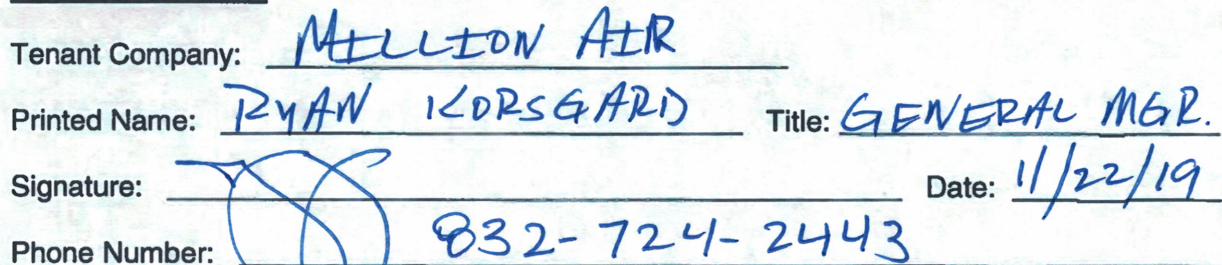 Tenant Company: MILLION AIR
Printed Name: RYAN KORSGARD Title: GENERAL MGR.
Signature: Date: 11/22/19
Phone Number: 832-724-2443